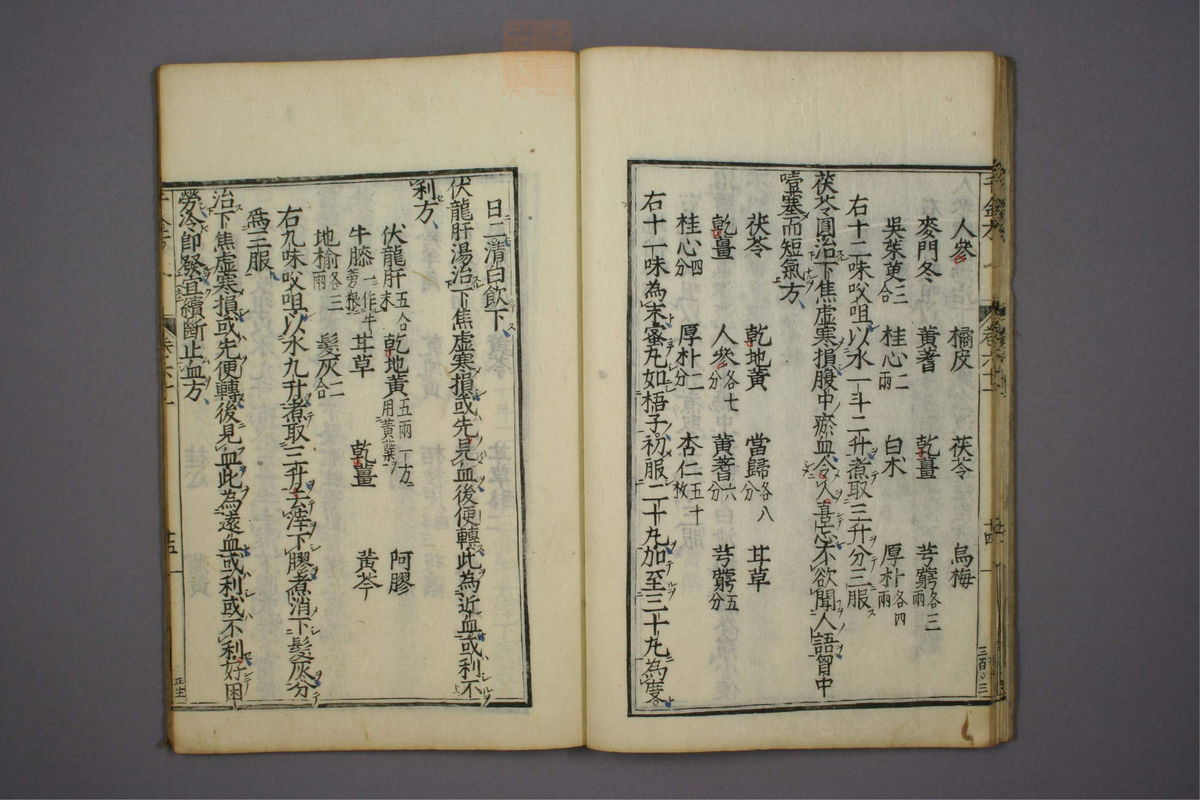 人參 橘皮 茯苓 烏梅
麥門冬 黃蓍 乾薑 芎藭各三兩
吳茱萸三合 桂心二兩 白朮 厚朴各四兩
右十二味㕮咀以水一斗二升煮取三升分三服
茯苓圓治下焦虛寒損腹中瘀血令人喜忘不欲聞人語胷中
噎塞而短氣方
茯苓 乾地黃 當歸各八分 甘草
乾薑 人參各七分 黃蓍六分 芎藭五分
桂心四分 厚朴二分 杏仁五十枚
右十一味為末蜜丸如梧子初服二十丸加至三十丸為度
日二清白飲下
伏龍肝湯治下焦虛寒損或先見血後便轉此為近血或利不
利方
伏龍肝末五合 乾地黃五兩一方用黃蘗 阿膠
牛膝一作牛蒡根 甘草 乾薑 黃芩
地榆各三兩 髮灰二合
右九味㕮咀以水九升煮取三升去滓下膠煮消下髮灰分
爲三服
治下焦虛寒損或先便轉後見血此為遠血或利或不利好因
勞冷即發宜續斷止血方